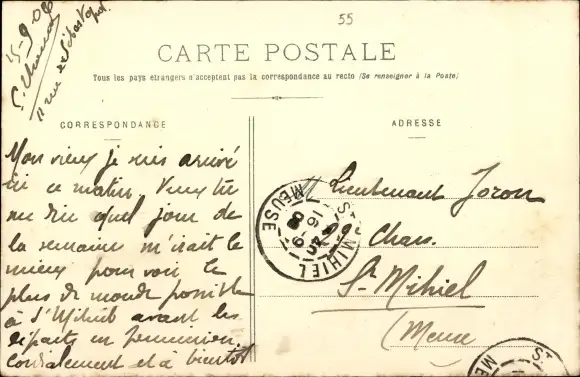 15-9-06
11 rue Sébastopol
55
CARTE POSTALE
Tous les pays étrangers n'acceptent pas la correspondance au recto (Se renseigner à la Poste)
CORRESPONDANCE
ADRESSE
Mon vieux je suis arrivé
ici ce matin. Veux tu
me dire quel jour de
la semaine m'irait le
mieux pour voir le
plus de monde possible
à St Mihiel avant les
départs en permission.
Cordialement et à bientôt
Lieutenant Joron
29 Chass.
St Mihiel
(Meuse
ST MIHIEL
MEUSE
16-9
ST
ME